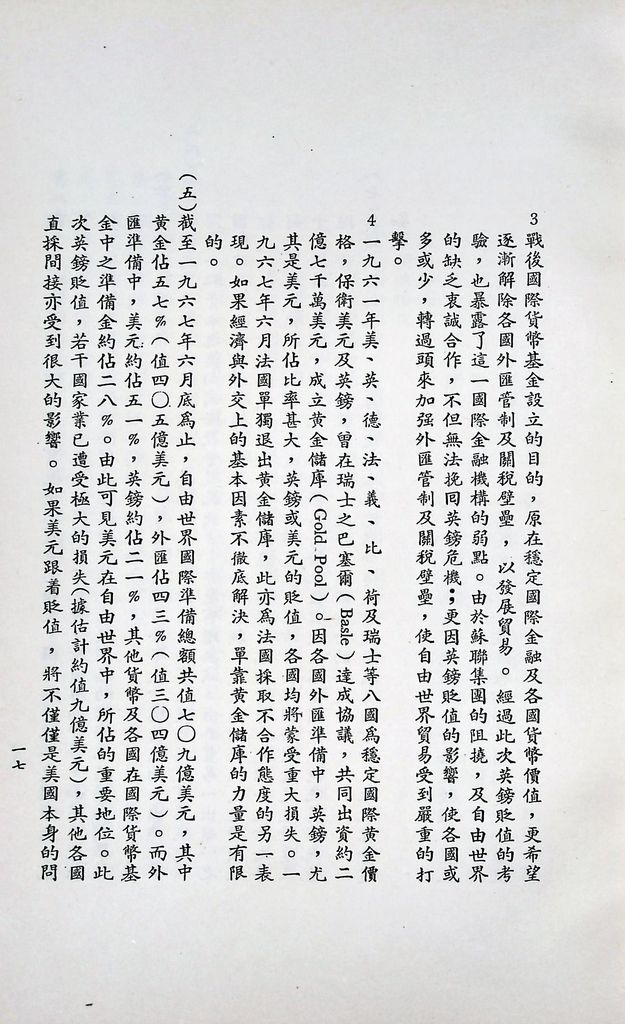 3戰後國際貨幣基金設立的目的，原在穩定國際金融及各國貨幣價值，更希望
逐漸解除各國外匯管制及關稅壁壘，以發展貿易。經過此次英鎊貶值的考
驗，也暴露了這一國際金融機構的弱點。由於蘇聯集團的阻撓，及自由世界
的缺乏衷誠合作，不但無法挽回英鎊危機；更因英鎊貶值的影響，使各國或
多或少，轉過頭來加强外匯管制及關稅壁壘，使自由世界貿易受到嚴重的打
擊。
4一九六一年美、英、德、法、義、比、荷及瑞士等八國爲穩定國際黄金價
格，保衛美元及英鎊，曾在瑞士之巴塞爾（Basle）達成協議，共同出資約二
億七千萬美元，成立黄金儲庫（Gold Pool）。因各國外匯準備中，英鎊，尤
其是美元，所佔比率甚大，英鎊或美元的貶值，各國均將蒙受重大損失。一
九六七年六月法國單獨退出黄金儲庫，此亦爲法國採取不合作態度的另一表
現。如果經濟與外交上的基本因素不徹底解決，單靠黄金儲庫的力量是有限
的。
（五）截至一九六七年六月底爲止，自由世界國際準備總額共值七〇九億美元，其中
黄金佔五七％（值四〇五億美元），外匯佔四三％（值三〇四億美元）。而外
匯準備中，美元約佔五一％，英鎊約佔二一％，其他貨幣及各國在國際貨幣基
金中之準備金約佔二八％。由此可見美元在自由世界中，所佔的重要地位。此
次英鎊貶值，若干國家業已遭受極大的損失（據估計約值九億美元），其他各國
直採間接亦受到很大的影響。如果美元跟着貶值，將不僅僅是美國本身的問
一七